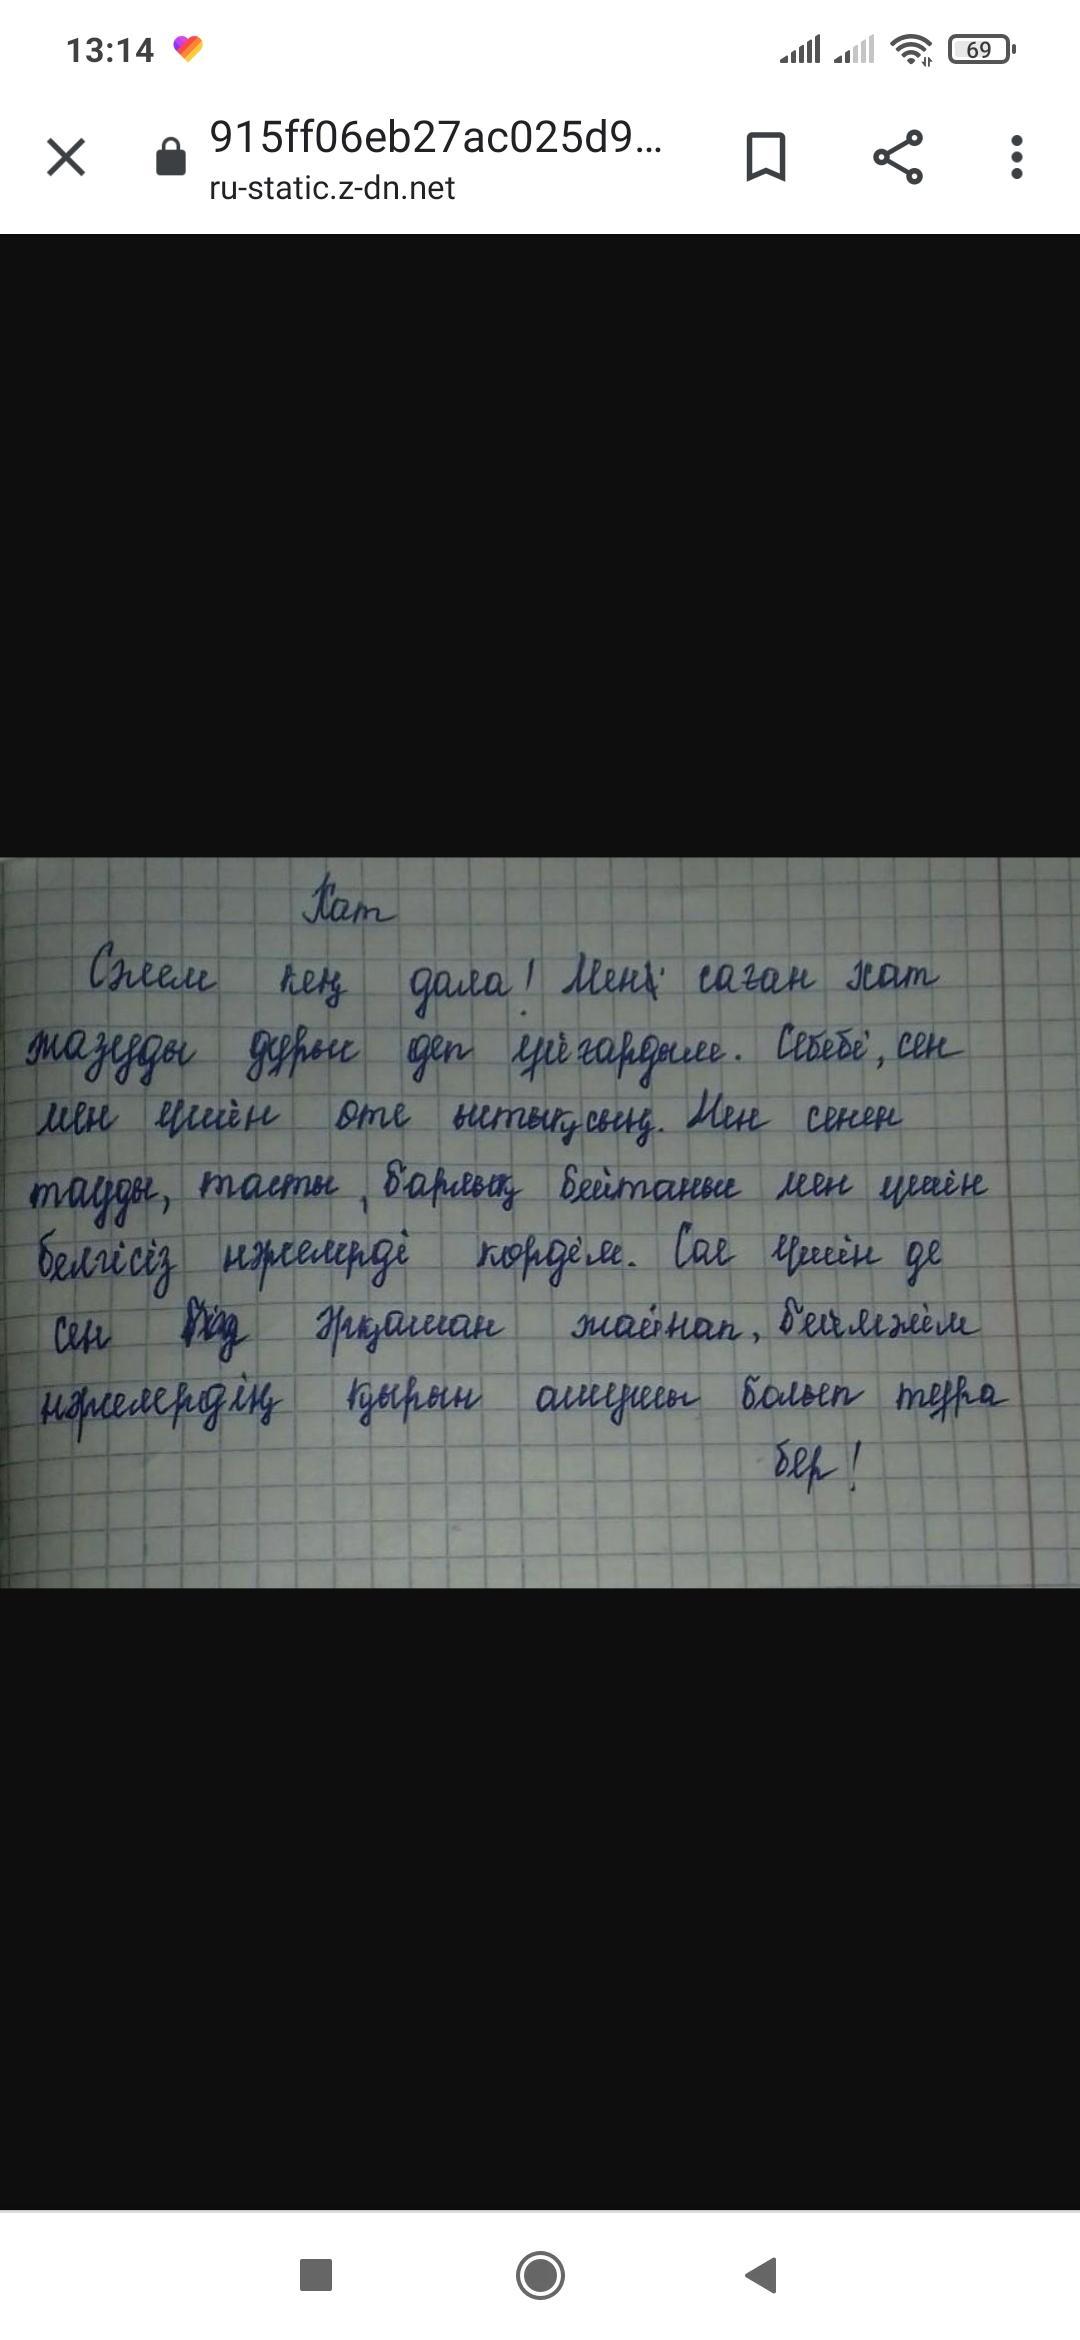 13:14
69
915ff06eb27ac025d9...
ru-static.z-dn.net
Хат
Сәлем кең дала! Мен саған хат
жазуды дұрыс деп ұйғардым. Себебі, сен
мен үшін өте ыстықсың. Мен сенен
тауды, тасты, барлық бейтаныс мен үшін
белгісіз нәрселерді көрдім. Сол үшін де
сен әрқашан жайнап, беймәлім
нәрселердің қырын ашушы болып тұра
бер!